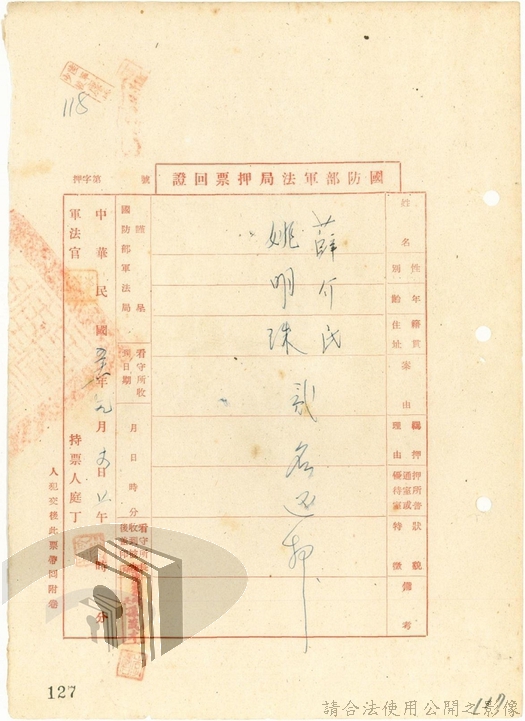 118
國防部軍法局押票回證
押字第 號
姓名
性別
年齡
籍貫
住址
案由
羈押理由
押所普通室或優待室
特徵
狀貌
備考
薛介民
姚明珠 貳名還押
謹呈
國防部軍法局
看守所收到日期
月日時分
中華民國 年九月 日 午 時 分
軍法官
持票人庭丁
人犯交後此票帶回附卷
127
請合法使用公開之影像